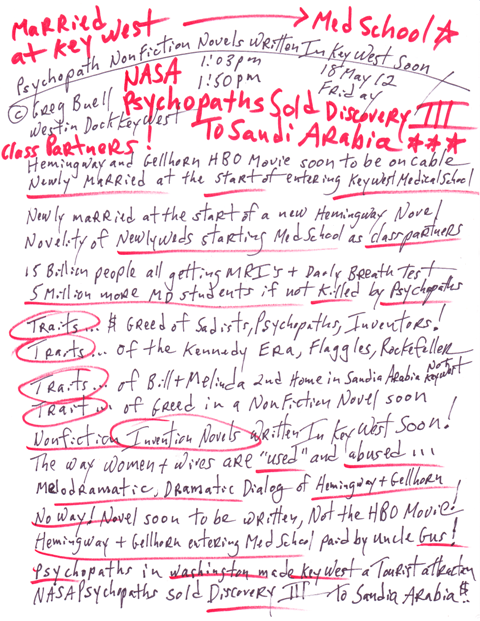 Married → Med School ☆
at Key West
Psychopath Nonfiction Novels Written In Key West Soon
1:03pm
1:50pm
18 May 12
Friday
© Greg Buell
Westin Dock Key West
NASA
Psychopaths Sold Discovery III
To Saudi Arabia ☆☆☆
Class Partners!
Hemingway and Gellhorn HBO Movie soon to be on cable
Newly Married at the start of entering Key West Medical School
Newly married at the start of a new Hemingway Novel
Novelity of Newlyweds starting Med School as class partners
15 Billion people all getting MRI's + Daely Breath Test
5 Million more MD students if not killed by Psychopaths
Traits... $ Greed of Sadists, Psychopaths, Inventors!
Traits... of the Kennedy Era, Flaggles, Rockefeller
Traits... of Bill + Melinda 2nd Home in Saudia Arabia Not Key West
Trait... of Greed in a NonFiction Novel soon
Nonfiction Invention Novels Written In Key West Soon!
The way women + wives are "used" and abused...
Melodramatic, Dramatic Dialog of Hemingway + Gellhorn
No Way! Novel soon to be written, Not the HBO Movie!
Hemingway + Gellhorn entering Med School paid by Uncle Gus!
Psychopaths in Washington made Key West a Tourist attraction
NASA Psychopaths sold Discovery III to Saudia Arabia $